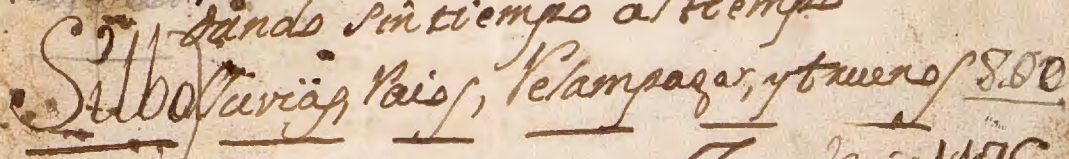 dando sin tiempo al tiempo
Silbo lluvias, Raios, Relampagos, y truenos 800